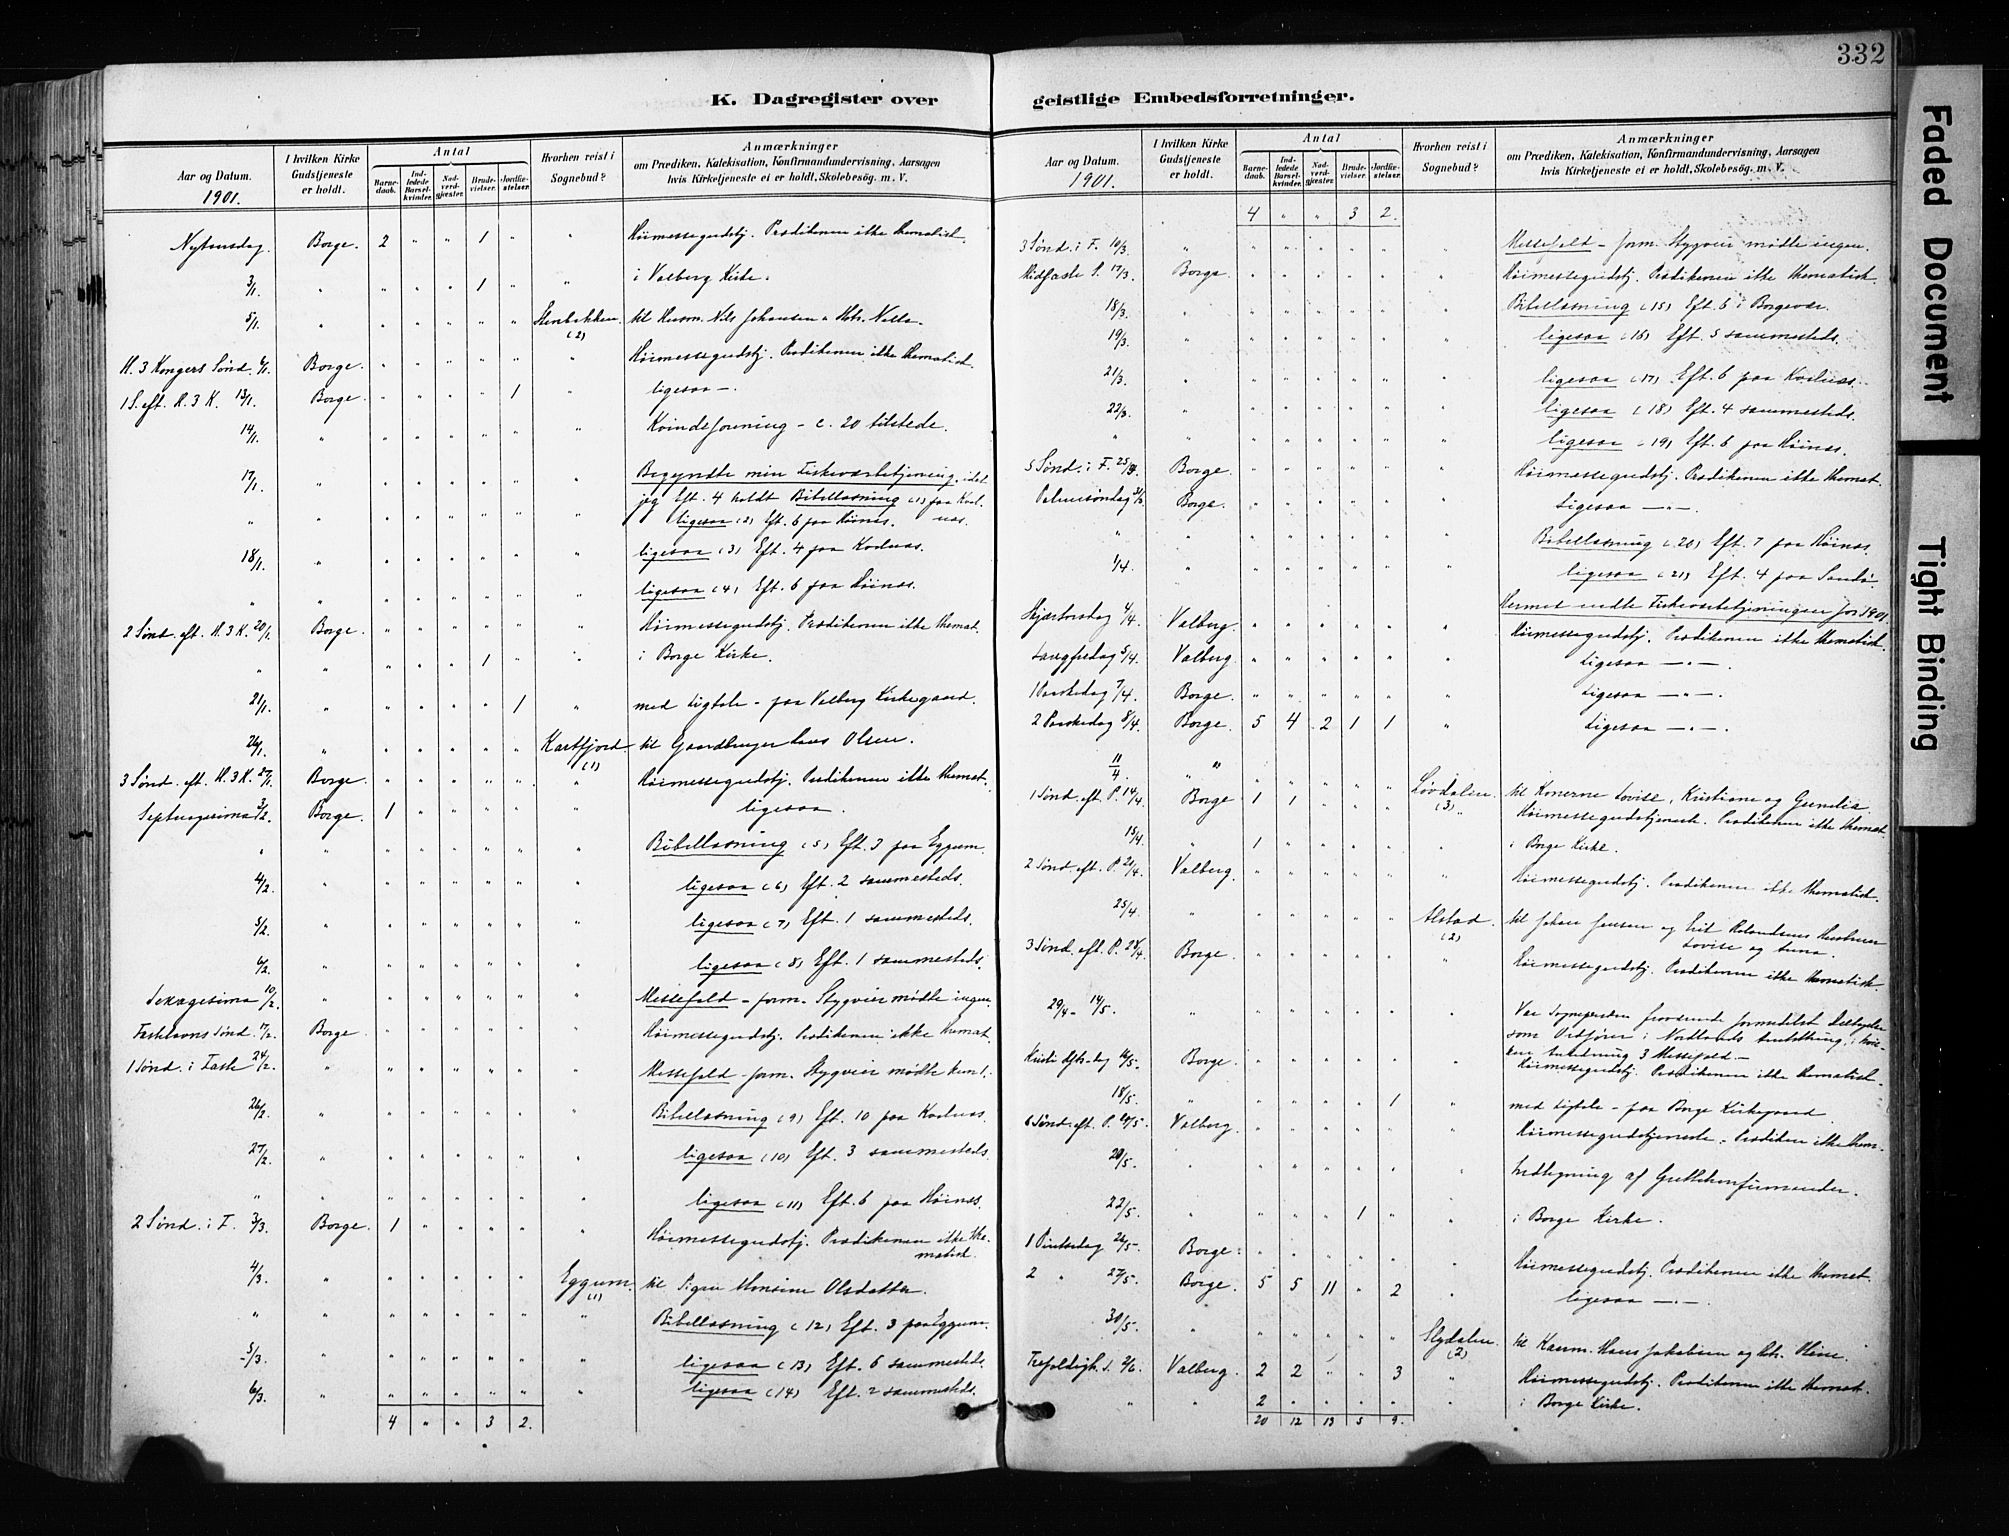 332
K. Dagregister over geistlige Embedsforretninger.
Aar og Datum. 1901.
I hvilken Kirke Gudstjeneste er holdt.
Antal
Barnedaab.
Indledede Barselkvinder.
Nadverdgjester.
Brudevielser.
Jordfæstelser.
Hvorhen reist i Sognebud?
Anmærkninger
om Prædiken, Katekisation, Konfirmandundervisning, Aarsagen
hvis Kirketjeneste ei er holdt, Skolebesög. m. V.
Nytaarsdag. Borge. 2 " " 1 " " Høimessegudstj. Prædikenen ikke thematisk.
3/1. " " " " 1 " " i Valberg Kirke.
5/1. " " " " " " Stenbakken (2) til Husm. Nils Johansen o Hstr. Nella.
H. 3 Kongers Sønd. 6/1. Borge. " " " " " " Høimessegudstj. Prædikenen ikke thematisk.
1 S. eft. H. 3 K. 13/1. Borge. " " " " 1 ligesaa —.
14/1. " " " " " " " Kvindeforening – c. 20 tilstede.
17/1. " " " " " " " Begyndte min Fiskeværsbetjening, idet
jeg Eft. 4 holdt Bibellæsning (1) paa Kvalnæs.
" " " " " " " " ligesaa (2) Eft. 6 paa Høinæs.
18/1. " " " " " " " ligesaa (3) Eft. 4 paa Kvalnæs.
" " " " " " " " ligesaa (4) Eft. 6 paa Høinæs.
2 Sønd. eft. H. 3 K. 20/1. Borge. " " " " " " Høimessegudstj. Prædikenen ikke themat.
" " " " " 1 " " i Borge Kirke.
21/1. " " " " " 1 " med Ligtale – paa Valberg Kirkegaard.
26/1. " " " " " " Kartfjord (1) til Gaardbruger Hans Olsen.
3 Sønd. eft. H. 3 K. 27/1. Borge. " " " " " " Høimessegudstj. Prædikenen ikke themat.
Septuagesima 3/2. Borge. 1 " " " " ligesaa
" " " " " " " " Bibellæsning (5) Eft. 3 paa Eggum.
4/2. " " " " " " " ligesaa (6) Eft. 2 sammesteds.
5/2. " " " " " " " ligesaa (7) Eft. 1 sammesteds.
6/2. " " " " " " " ligesaa (8) Eft. 1 sammesteds.
Sexagesima 10/2. " " " " " " " Messefald – form. Stygveir mødte ingen.
Fastelavns Sønd. 17/2. Borge. " " " " " " Høimessegudstj. Prædikenen ikke themat.
1 Sønd. i Faste 24/2. " " " " " " " Messefald – form. Stygveir mødte kun 1.
26/2. " " " " " " " Bibellæsning (9) Eft. 10 paa Kvalnæs.
27/2. " " " " " " " ligesaa (10) Eft. 3 sammesteds.
" " " " " " " " ligesaa (11) Eft. 6 paa Høinæs.
2 Sønd. i F. 3/3. Borge. 1 " " " " " Høimessegudstj. Prædikenen ikke thematisk.
4/3. " " " " " " Eggum (1) til Pigen Monsine Olsdatter.
" " " " " " " " Bibellæsning (12) Eft. 3 paa Eggum.
5/3. " " " " " " " ligesaa (13) Eft. 6 sammesteds.
6/3. " " " " " " " ligesaa (14) Eft. 2 sammesteds.
4 " " 3 2.
Aar og Datum. 1901.
I hvilken Kirke Gudstjeneste er holdt.
Antal
Barnedaab.
Indledede Barselkvinder.
Nadverdgjester.
Brudevielser.
Jordfæstelser.
Hvorhen reist i Sognebud?
Anmærkninger
om Prædiken, Katekisation, Konfirmandundervisning, Aarsagen
hvis Kirketjeneste ei er holdt, Skolebesög. m. V.
4 " " 3 2.
3 Sønd. i F. 10/3. " " " " " " " Messefald – form. Stygveir mødte ingen.
Midfaste S. 17/3. Borge. " " " " " " Høimessegudstj. Prædikenen ikke thematisk.
18/3. " " " " " " " Bibellæsning (15) Eft. 6 i Borgevær.
19/3. " " " " " " " ligesaa (16) Eft. 5 sammesteds.
21/3. " " " " " " " ligesaa (17) Eft. 6 paa Kvalnæs.
22/3. " " " " " " " ligesaa (18) Eft. 4 sammesteds.
" " " " " " " " ligesaa (19) Eft. 6 paa Høinæs.
5 Sønd. i F. Borge. " " " " " " Høimessegudstj. Prædikenen ikke themat.
Palmesøndag 31/3. Borge. " " " " " " Ligesaa — " —.
" " " " " " " " Bibellæsning (20) Eft. 7 paa Høinæs.
1/4. " " " " " " " ligesaa (21) Eft. 4 paa Sandø.
Hermed endte Fiskeværsbetjeningen for 1901.
Skjærtorsdag 4/4. Valberg. " " " " " " Høimessegudstj. Prædikenen ikke thematisk.
Langfredag 5/4. Valberg. " " " " " " ligesaa — " —.
1 Paaskedag 7/4. Borge. " " " " " " ligesaa — " —.
2 Paaskedag 8/4. Borge. 5 4 2 1 1 " ligesaa — " —.
11/4. " " " " " " Løvdalen (3) til Konerne Lovise, Kristiane og Gunelia
1 Sønd. eft. P. 14/4. Borge 1 1 " " " " Høimessegudstjeneste. Prædikenen ikke themat.
15/4. " 1 " " " " " i Borge Kirke.
2 Sønd. eft. P. 21/4. Valberg. " " " " " " Høimessegudstj. Prædikenen ikke thematisk.
25/4. " " " " " " Alstad (2) til Johan Jensen og Hustruer
Lovise og Anna.
3 Sønd. eft. P. 28/4. Borge. " " " " " " Høimessegudstj. Prædikenen ikke thematisk.
29/4 – 14/5. " " " " " " " Var Sognepresten fraværende
som i Nordlands
Anledning 3 Messefald –
Kristi Hfts.dag 16/5. Borge. " " " " " " Høimessegudstj. Prædikenen ikke thematisk.
18/5. " " " " " 1 " med Ligtale – paa Borge Kirkegaard
6 Sønd. eft. P. Valberg. " " " " " " Høimessegudstjeneste. Prædiken ikke them.
20/5. " " " " " " " Indtegning af
22/5. " " " " 1 " " i Borge Kirke.
1 Pintsedag 26/5. Borge. " " " " " " Høimessegudstj. Prædikenen ikke themat.
2 " 27/5. Borge. 5 5 11 " 2 " ligesaa — " —.
30/5. " " " " " " Slydalen (2) til Kaarm. Hans Jakobsen og
Trefoldigh. S. 2/6. Valberg. 2 2 " " 3 " Høimessegudstj. Prædikenen ikke themat.
" " 2 " " " " " i Borge Kirke.
20 12 13 5 9.
Faded Document
Tight Binding